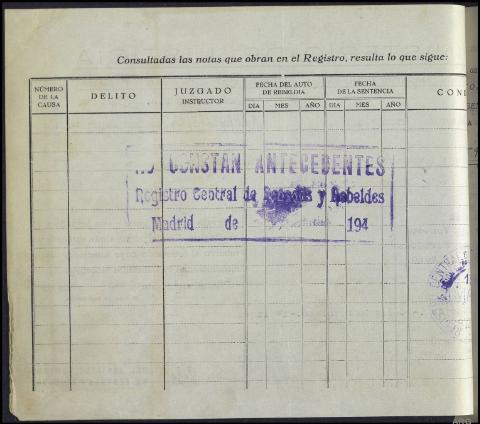 Consultadas las notas que obran en el Registro, resulta lo que sigue:
NÚMERO DE LA CAUSA
DELITO
JUZGADO INSTRUCTOR
FECHA DEL AUTO DE REBELDIA
DIA MES AÑO
FECHA DE LA SENTENCIA
DIA MES AÑO
CON
NO CONSTAN ANTECEDENTES
Registro Central de Penados y Rebeldes
Madrid de 194
CENTRAL